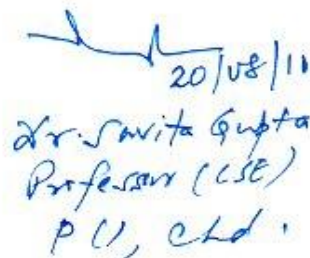 20/08/11
Dr. Savita Gupta
Professor (CSE)
PU, Chd.